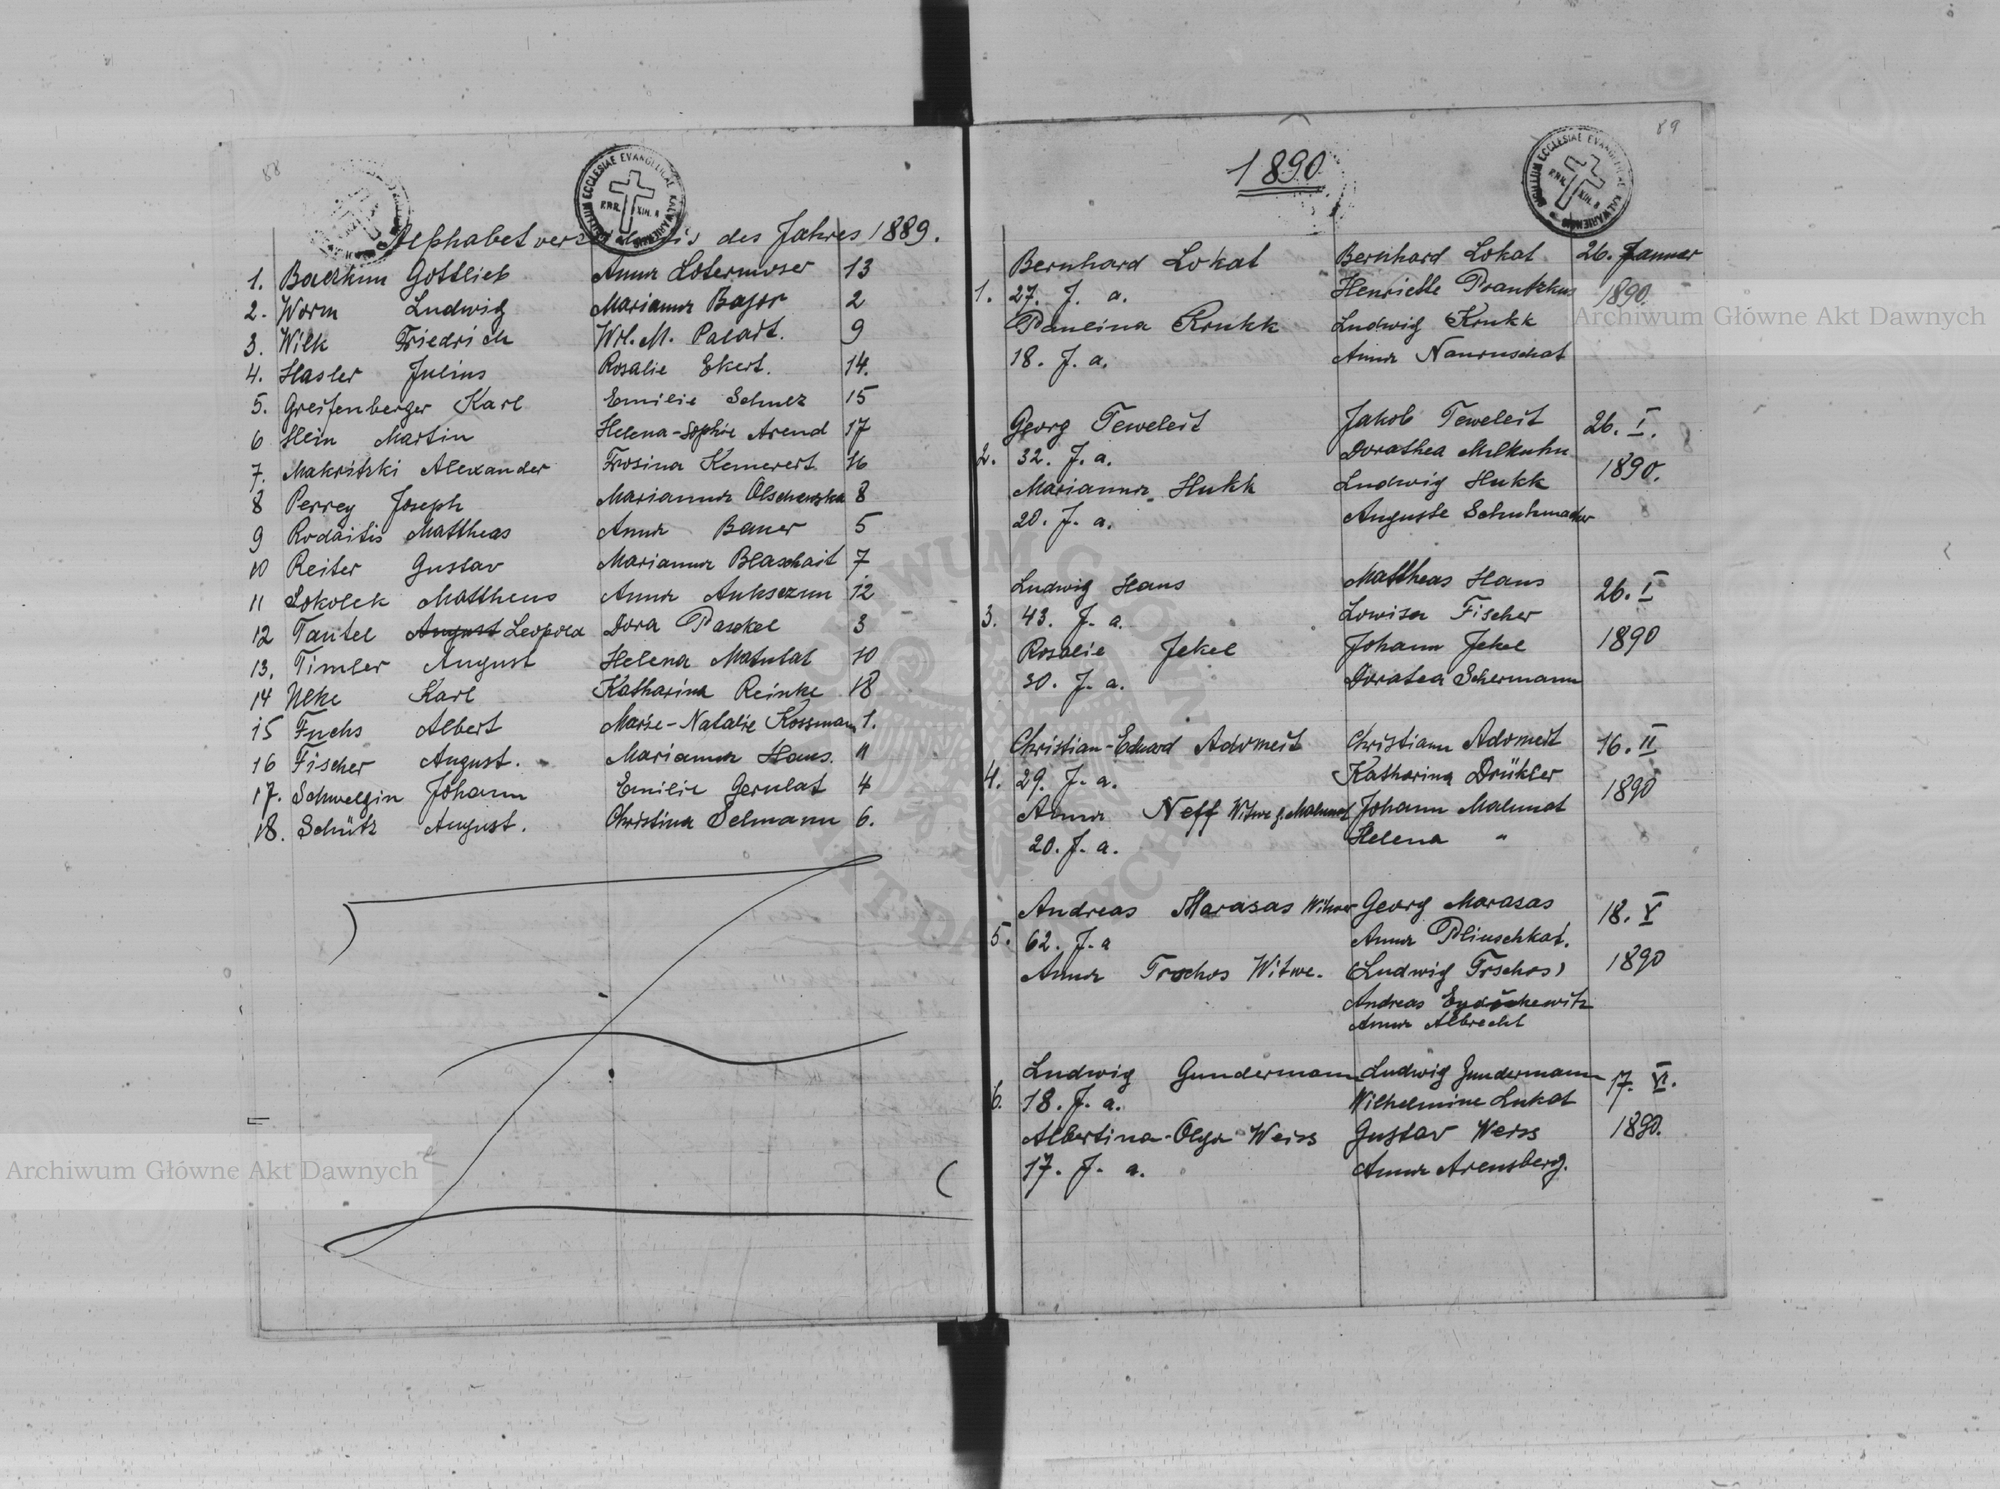 88
Alphabetverzeichnis des Jahres 1889.
1. Gottlieb Anna Lotermoser 13
2. Worm Ludwig Marianna Bajor 2
3. Wilk Friedrich Wil. M. Paladt. 9
4. Hasler Julius Rosalie Ekert. 14.
5. Greifenberger Karl Emilie Schulz 15
6 Hein Martin Helena-Sophie Arend 17
7. Makritzki Alexander Frosina Kemerert 16
8 Perrey Joseph Marianna Olschewska 8
9 Rodaitis Mattheas Anna Bauer 5
10 Reiter Gustav Marianna Blaschait 7
11 Sokolek Mattheus Anna Auksczun 12
12 Tautel August Leopold Dora Paschel 3
13. Timler August Helena Matulat 10
14 Ulke Karl Katharina Reinke 18
15 Fuchs Albert Marie-Natalie Kossmann 1.
16 Fischer August. Marianna Hans. 11
17. Schwelgin Johann Emilie Gerulat 4
18. Schütz August. Christina Selmann 6.
89
1890
Bernhard Lokat Bernhard Lokat 26. Januar
1. 27. J. a. Henriette Prantzkus 1890
Paulina Krukk Ludwig Krukk
18. J. a. Anna Nauruschat
Georg Teweleit Jakob Teweleit 26. I.
2. 32. J. a. Dorathea Milkuhn 1890.
Marianna Hukk Ludwig Hukk
20. J. a. Auguste Schuhmacher
Ludwig Hans Mattheas Hans 26. I
3. 43. J. a. Lowisa Fischer
Rosalie Jekel Johann Jekel 1890
30. J. a. Doratea Schermann
Christian-Eduard Adomeit Christian Adomeit 16. II
4. 29. J. a. Katharina Drükler 1890
Anna Neff Witwe g. Malunat Johann Malunat
20. J. a. Helena "
Andreas Marasas Witwer Georg Marasas 18. V
5. 62. J. a Anna Pliuschkat. 1890
Anna Trschos Witwe. (Ludwig Trschos)
Andreas
Anna Albrecht
Ludwig Gundermann Ludwig Gundermann 17. VI.
6. 18. J. a. Wilhelmine Lukat
Albertina-Olga Weiss Gustav Weiss 1890.
17. J. a. Anna Arensberg.
SIGILLUM ECCLESIAE EVANGELICAE KALWARIENSIS
Archiwum Główne Akt Dawnych
Archiwum Główne Akt Dawnych
ARCHIWUM GŁÓWNE AKT DAWNYCH